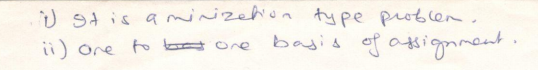 i) It is a minizetion type problem.
ii) One to one basis of assignment.